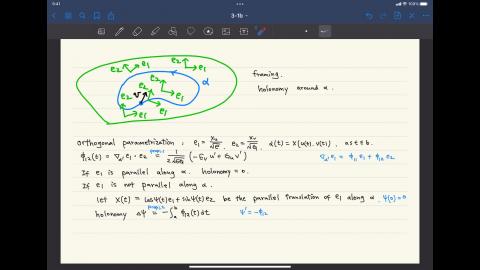 9:41
3-1b
e₂ e₁
e₂ e₁
e₂ e₁
e₂ e₁
V
α
framing.
holonomy around α.
orthogonal parametrization : e₁ = xᵤ/√E, e₂ = xᵥ/√G, α(t) = x(u(t), v(t)), a≤t≤b.
ϕ₁₂(t) = ∇α' e₁ · e₂ = 1/(2√EG) (−Eᵥ u' + Gᵤ v')
∇α' e₁ = ϕ₁₁ e₁ + ϕ₁₂ e₂
If e₁ is parallel along α, holonomy = 0.
If e₁ is not parallel along α.
let X(t) = cosψ(t)e₁ + sinψ(t)e₂ be the parallel translation of e₁ along α. ψ(0)=0
holonomy Δψ = −∫ₐᵇ ϕ₁₂(t) dt
ψ' = −ϕ₁₂